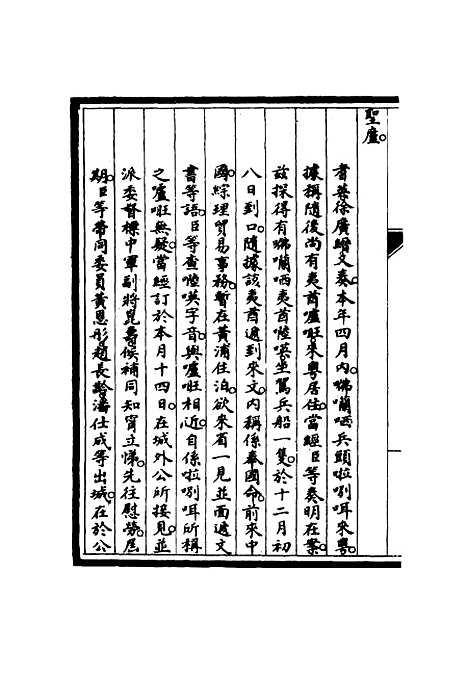 聖廑。
耆英徐廣縉又奏。本年四月內。咈囒哂兵頭啦喇咡來粵。
據稱隨後尚有夷酋嚧旺來粵居住。當經臣等奏明在案。
茲探得有咈囒哂夷酋陸𠸄坐駕兵船一隻。於十二月初
八日到口。隨據該夷酋遞到來文。內稱係奉國命。前來中
國。綜理貿易事務。暫在黃浦住泊。欲來省一見。並面遞文
書等語。臣等查陸𠸄字音。與嚧旺相近。自係啦喇咡所稱
之嚧旺無疑。當經訂於本月十四日。在城外公所接見。並
派委督標中軍副將崑壽。候補同知甯立悌。先往慰勞。屆
期。臣等帶同委員黃恩彤趙長齡潘仕成等出城。在於公